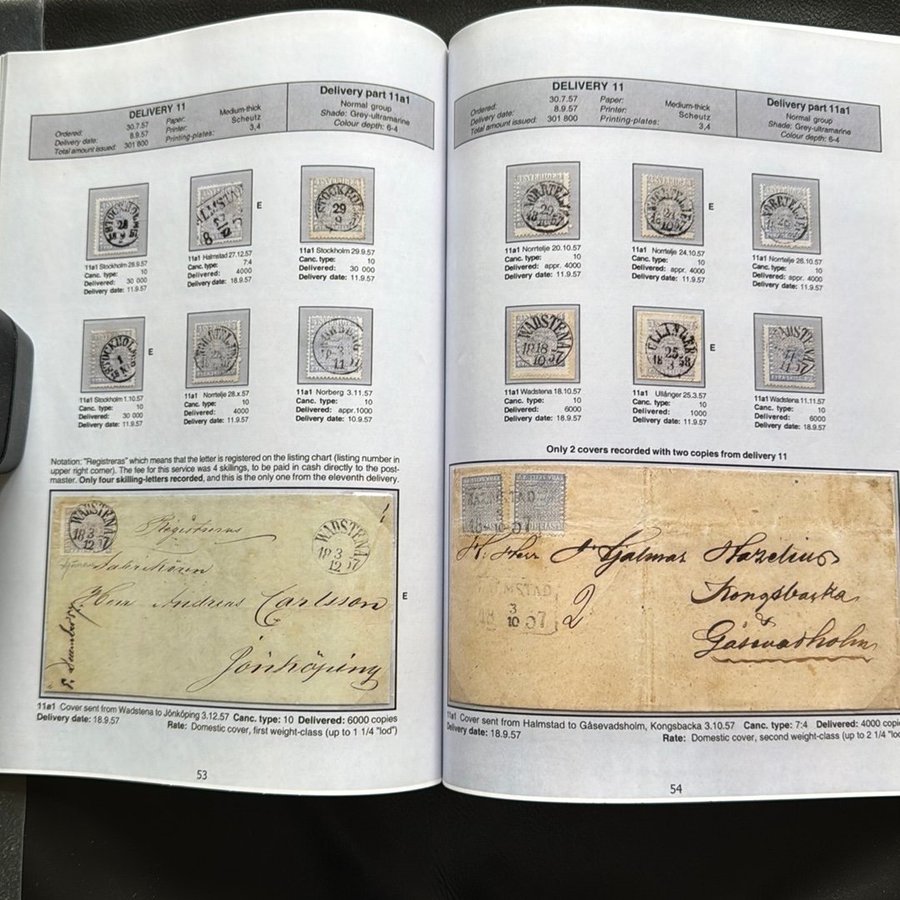 DELIVERY 11
Ordered: 30.7.57
Delivery date: 8.9.57
Total amount issued: 301 800
Paper: Medium-thick
Printer: Scheutz
Printing-plates: 3,4
Delivery part 11a1
Normal group
Shade: Grey-ultramarine
Colour depth: 6-4
E
11a1 Stockholm 28.9.57
Canc. type: 10
Delivered: 30 000
Delivery date: 11.9.57
11a1 Halmstad 27.12.57
Canc. type: 7:4
Delivered: 4000
Delivery date: 18.9.57
11a1 Stockholm 29.9.57
Canc. type: 10
Delivered: 30 000
Delivery date: 11.9.57
E
11a1 Stockholm 1.10.57
Canc. type: 10
Delivered: 30 000
Delivery date: 11.9.57
11a1 Norrtelje 28.x.57
Canc. type: 10
Delivered: 4000
Delivery date: 11.9.57
11a1 Norberg 3.11.57
Canc. type: 10
Delivered: appr.1000
Delivery date: 10.9.57
Notation: "Registreras" which means that the letter is registered on the listing chart (listing number in
upper right corner). The fee for this service was 4 skillings, to be paid in cash directly to the post-
master. Only four skilling-letters recorded, and this is the only one from the eleventh delivery.
WADSTENA
18 3
12 57
Registreras
WADSTENA
18 3
12 57
Fabrikören
Herr Andreas Carlsson
Jönköping
E
11a1 Cover sent from Wadstena to Jönköping 3.12.57 Canc. type: 10 Delivered: 6000 copies
Delivery date: 18.9.57
Rate: Domestic cover, first weight-class (up to 1 1/4 "lod")
53
DELIVERY 11
Ordered: 30.7.57
Delivery date: 8.9.57
Total amount issued: 301 800
Paper: Medium-thick
Printer: Scheutz
Printing-plates: 3,4
Delivery part 11a1
Normal group
Shade: Grey-ultramarine
Colour depth: 6-4
E
11a1 Norrtelje 20.10.57
Canc. type: 10
Delivered: appr. 4000
Delivery date: 11.9.57
11a1 Norrtelje 24.10.57
Canc. type: 10
Delivered: appr. 4000
Delivery date: 11.9.57
11a1 Norrtelje 28.10.57
Canc. type: 10
Delivered: appr. 4000
Delivery date: 11.9.57
E
11a1 Wadstena 18.10.57
Canc. type: 10
Delivered: 6000
Delivery date: 18.9.57
11a1 Ullånger 25.3.57
Canc. type: 10
Delivered: 1000
Delivery date: 11.9.57
11a1 Wadstena 11.11.57
Canc. type: 10
Delivered: 6000
Delivery date: 18.9.57
Only 2 covers recorded with two copies from delivery 11
Hjalmar Hazelius
Kongsbacka
&
Gåsevadholm
HALMSTAD
18 3 57
10
2
11a1 Cover sent from Halmstad to Gåsevadsholm, Kongsbacka 3.10.57 Canc. type: 7:4 Delivered: 4000
Delivery date: 18.9.57
Rate: Domestic cover, second weight-class (up to 2 1/4
54